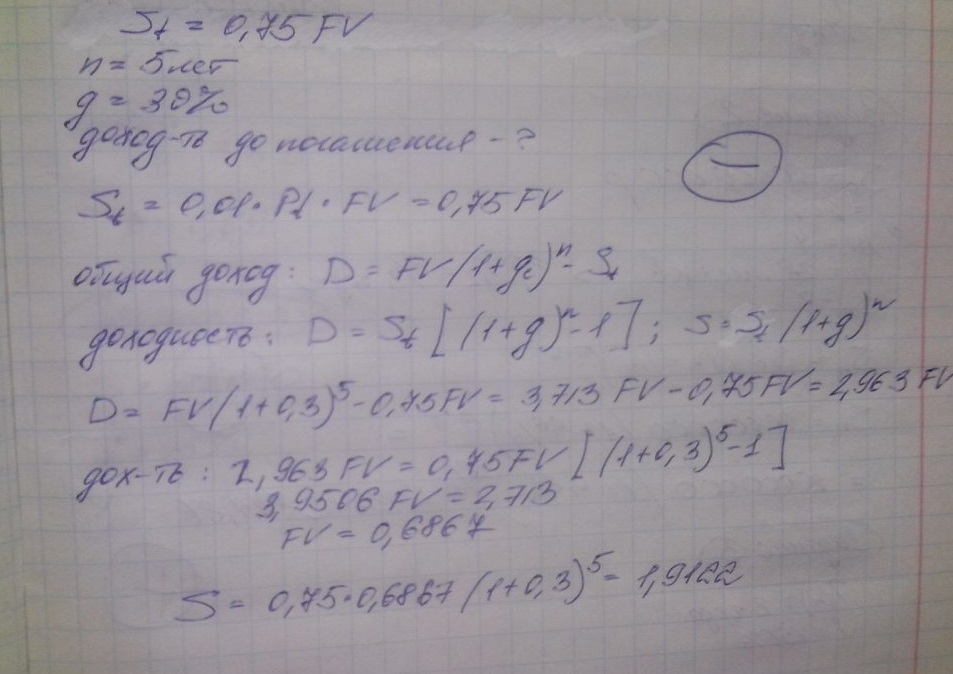 St = 0,75 FV
n = 5 лет
g = 30%
доход-ть до погашения - ?
St = 0,01 · Pt · FV = 0,75 FV
общий доход: D = FV(1+gc)ⁿ - St
доходность: D = St [(1+g)ⁿ-1]; S = St (1+g)ⁿ
D = FV(1+0,3)⁵ - 0,75FV = 3,713 FV - 0,75FV = 2,963 FV
дох-ть: 2,963 FV = 0,75FV [(1+0,3)⁵-1]
3,9506 FV = 2,713
FV = 0,6867
S = 0,75·0,6867 (1+0,3)⁵ = 1,9122